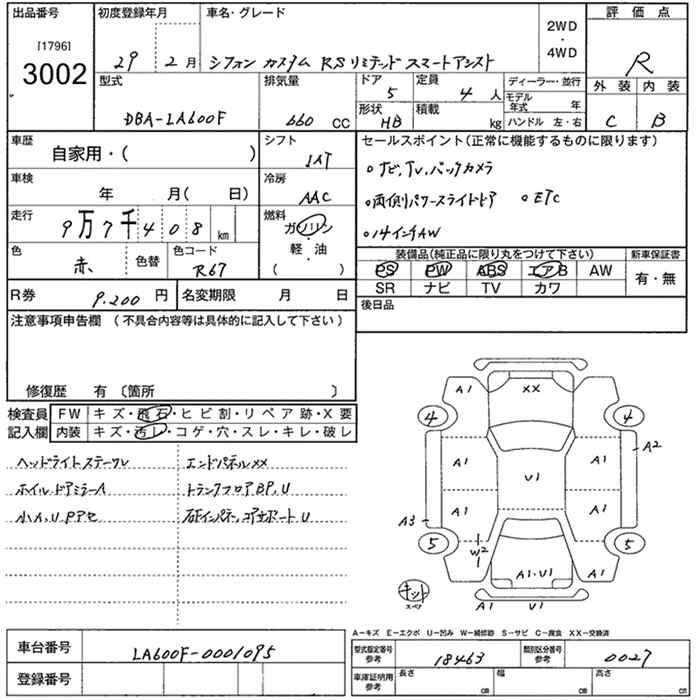 出品番号
[1796]
3002
初度登録年月
29 2月
車名・グレード
シフォン カスタム RSリミテッド スマートアシスト
2WD
・
4WD
評価点
R
型式
DBA-LA600F
排気量
660 CC
ドア
5
定員
4 人
形状
HB
積載
kg
ディーラー・並行
モデル年式 年
ハンドル 左・右
外装 内装
C B
車歴
自家用・( )
シフト
IAT
車検
年 月( 日)
冷房
AAC
走行
9万7千408 km
燃料
ガソリン
・
軽・油
( )
色
赤
色替
色コード
R67
R券
9,200 円
名変期限 月 日
セールスポイント(正常に機能するものに限ります)
・ナビ,TV,バックカメラ
・両側パワースライドドア ・ETC
・14インチAW
装備品(純正品に限り丸をつけて下さい) 新車保証書
PS PW ABS エアB AW
SR ナビ TV カワ
有・無
後日品
注意事項申告欄 (不具合内容等は具体的に記入して下さい)
修復歴 有 〔箇所 〕
検査員記入欄
FW キズ・飛石・ヒビ割・リペア跡・X要
内装 キズ・汚レ・コゲ・穴・スレ・キレ・破レ
ヘッドライトステークレ エンドパネルXX
ホイル.ドアミラーA トランクフロアBP,U
小A,U Pアセ
A1 XX
4 4
A2
A1 A1
U1
A1 A1
A3
5 W2 5
A1・U1
キット
スペア
A1 U1
A-キズ E-エクボ U-凹み W-補修跡 S-サビ C-腐食 XX-交換済
車台番号
LA600F-0001095
登録番号
型式指定番号 参考
18463
類別区分番号 参考
0027
車庫証明用 参考
長さ cm 幅 cm 高さ cm